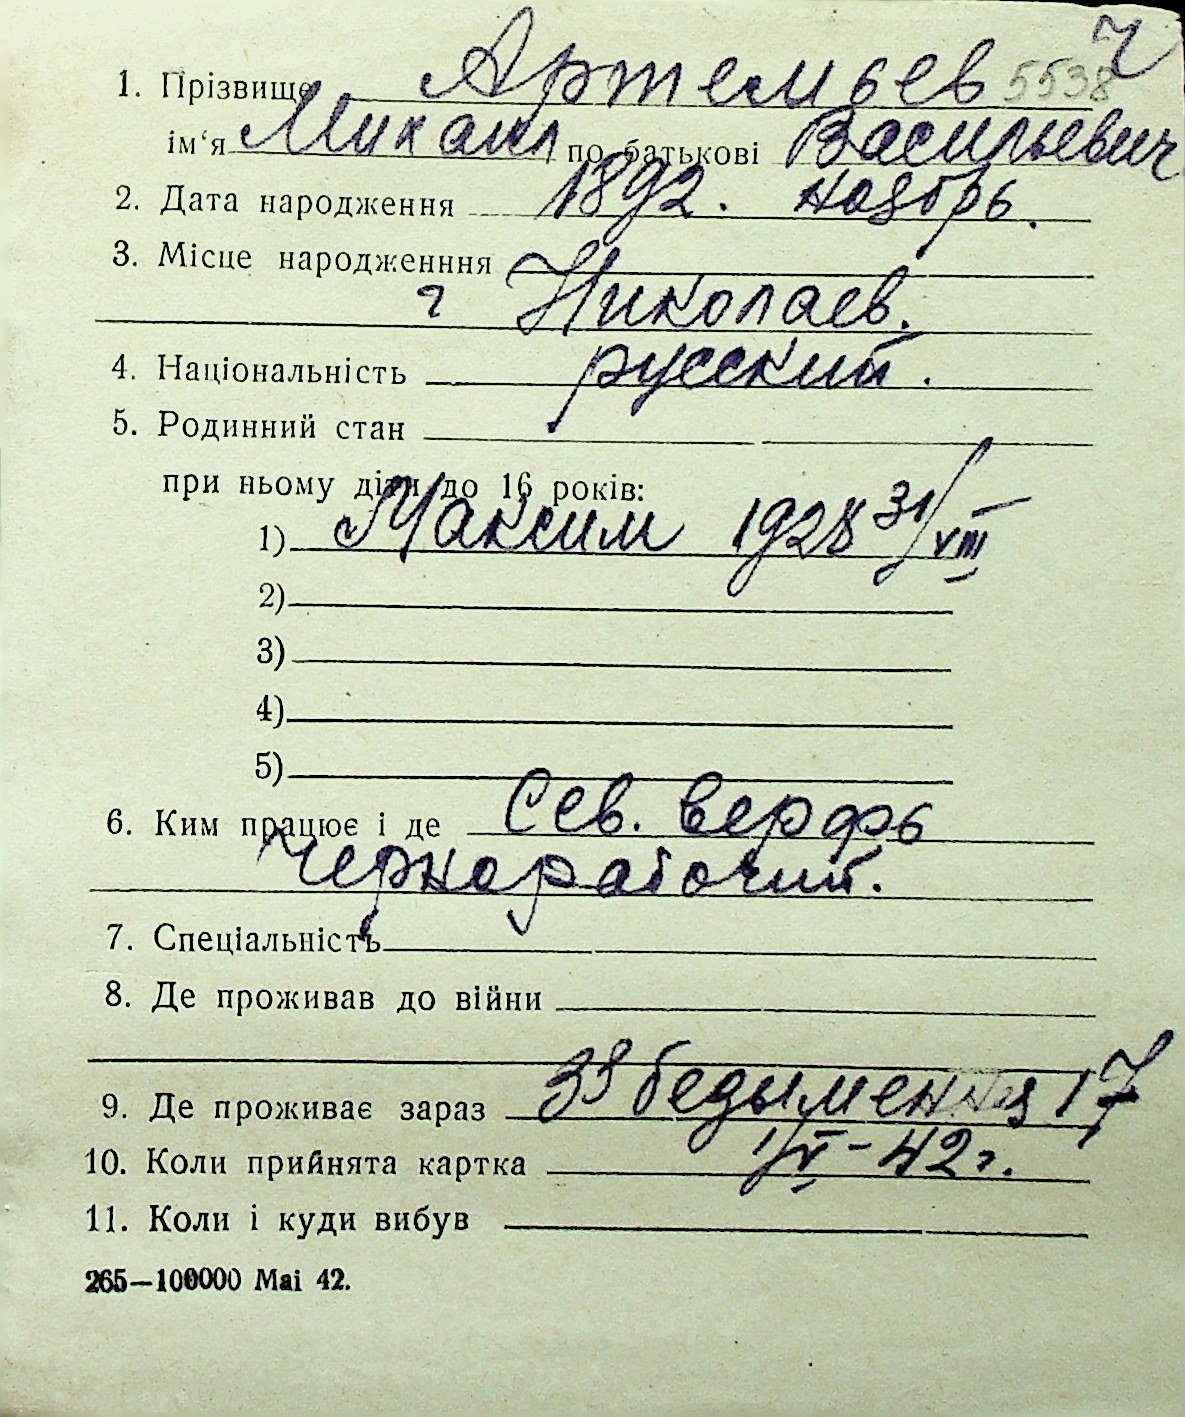 Ч
1. Прізвище Артемьев 5538
ім‘я Михаил по батькові Васильевич
2. Дата народження 1892. ноябрь.
3. Місце народженння
г Николаев.
4. Національність русский.
5. Родинний стан
при ньому діти до 16 років:
1) Максим 1928 31/VIII
2)
3)
4)
5)
6. Ким працює і де Сев. верфь
Чернорабочий.
7. Спеціальність
8. Де проживав до війни
9. Де проживає зараз 17
10. Коли прийнята картка 1/VI-42г.
11. Коли і куди вибув
265—100000 Mai 42.